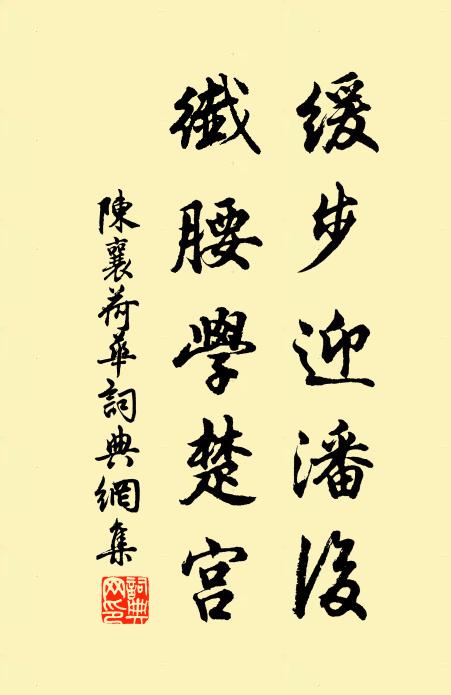 緩步迎潘後
纖腰學楚宮
陳襄荷華詞典網集
詞典网印